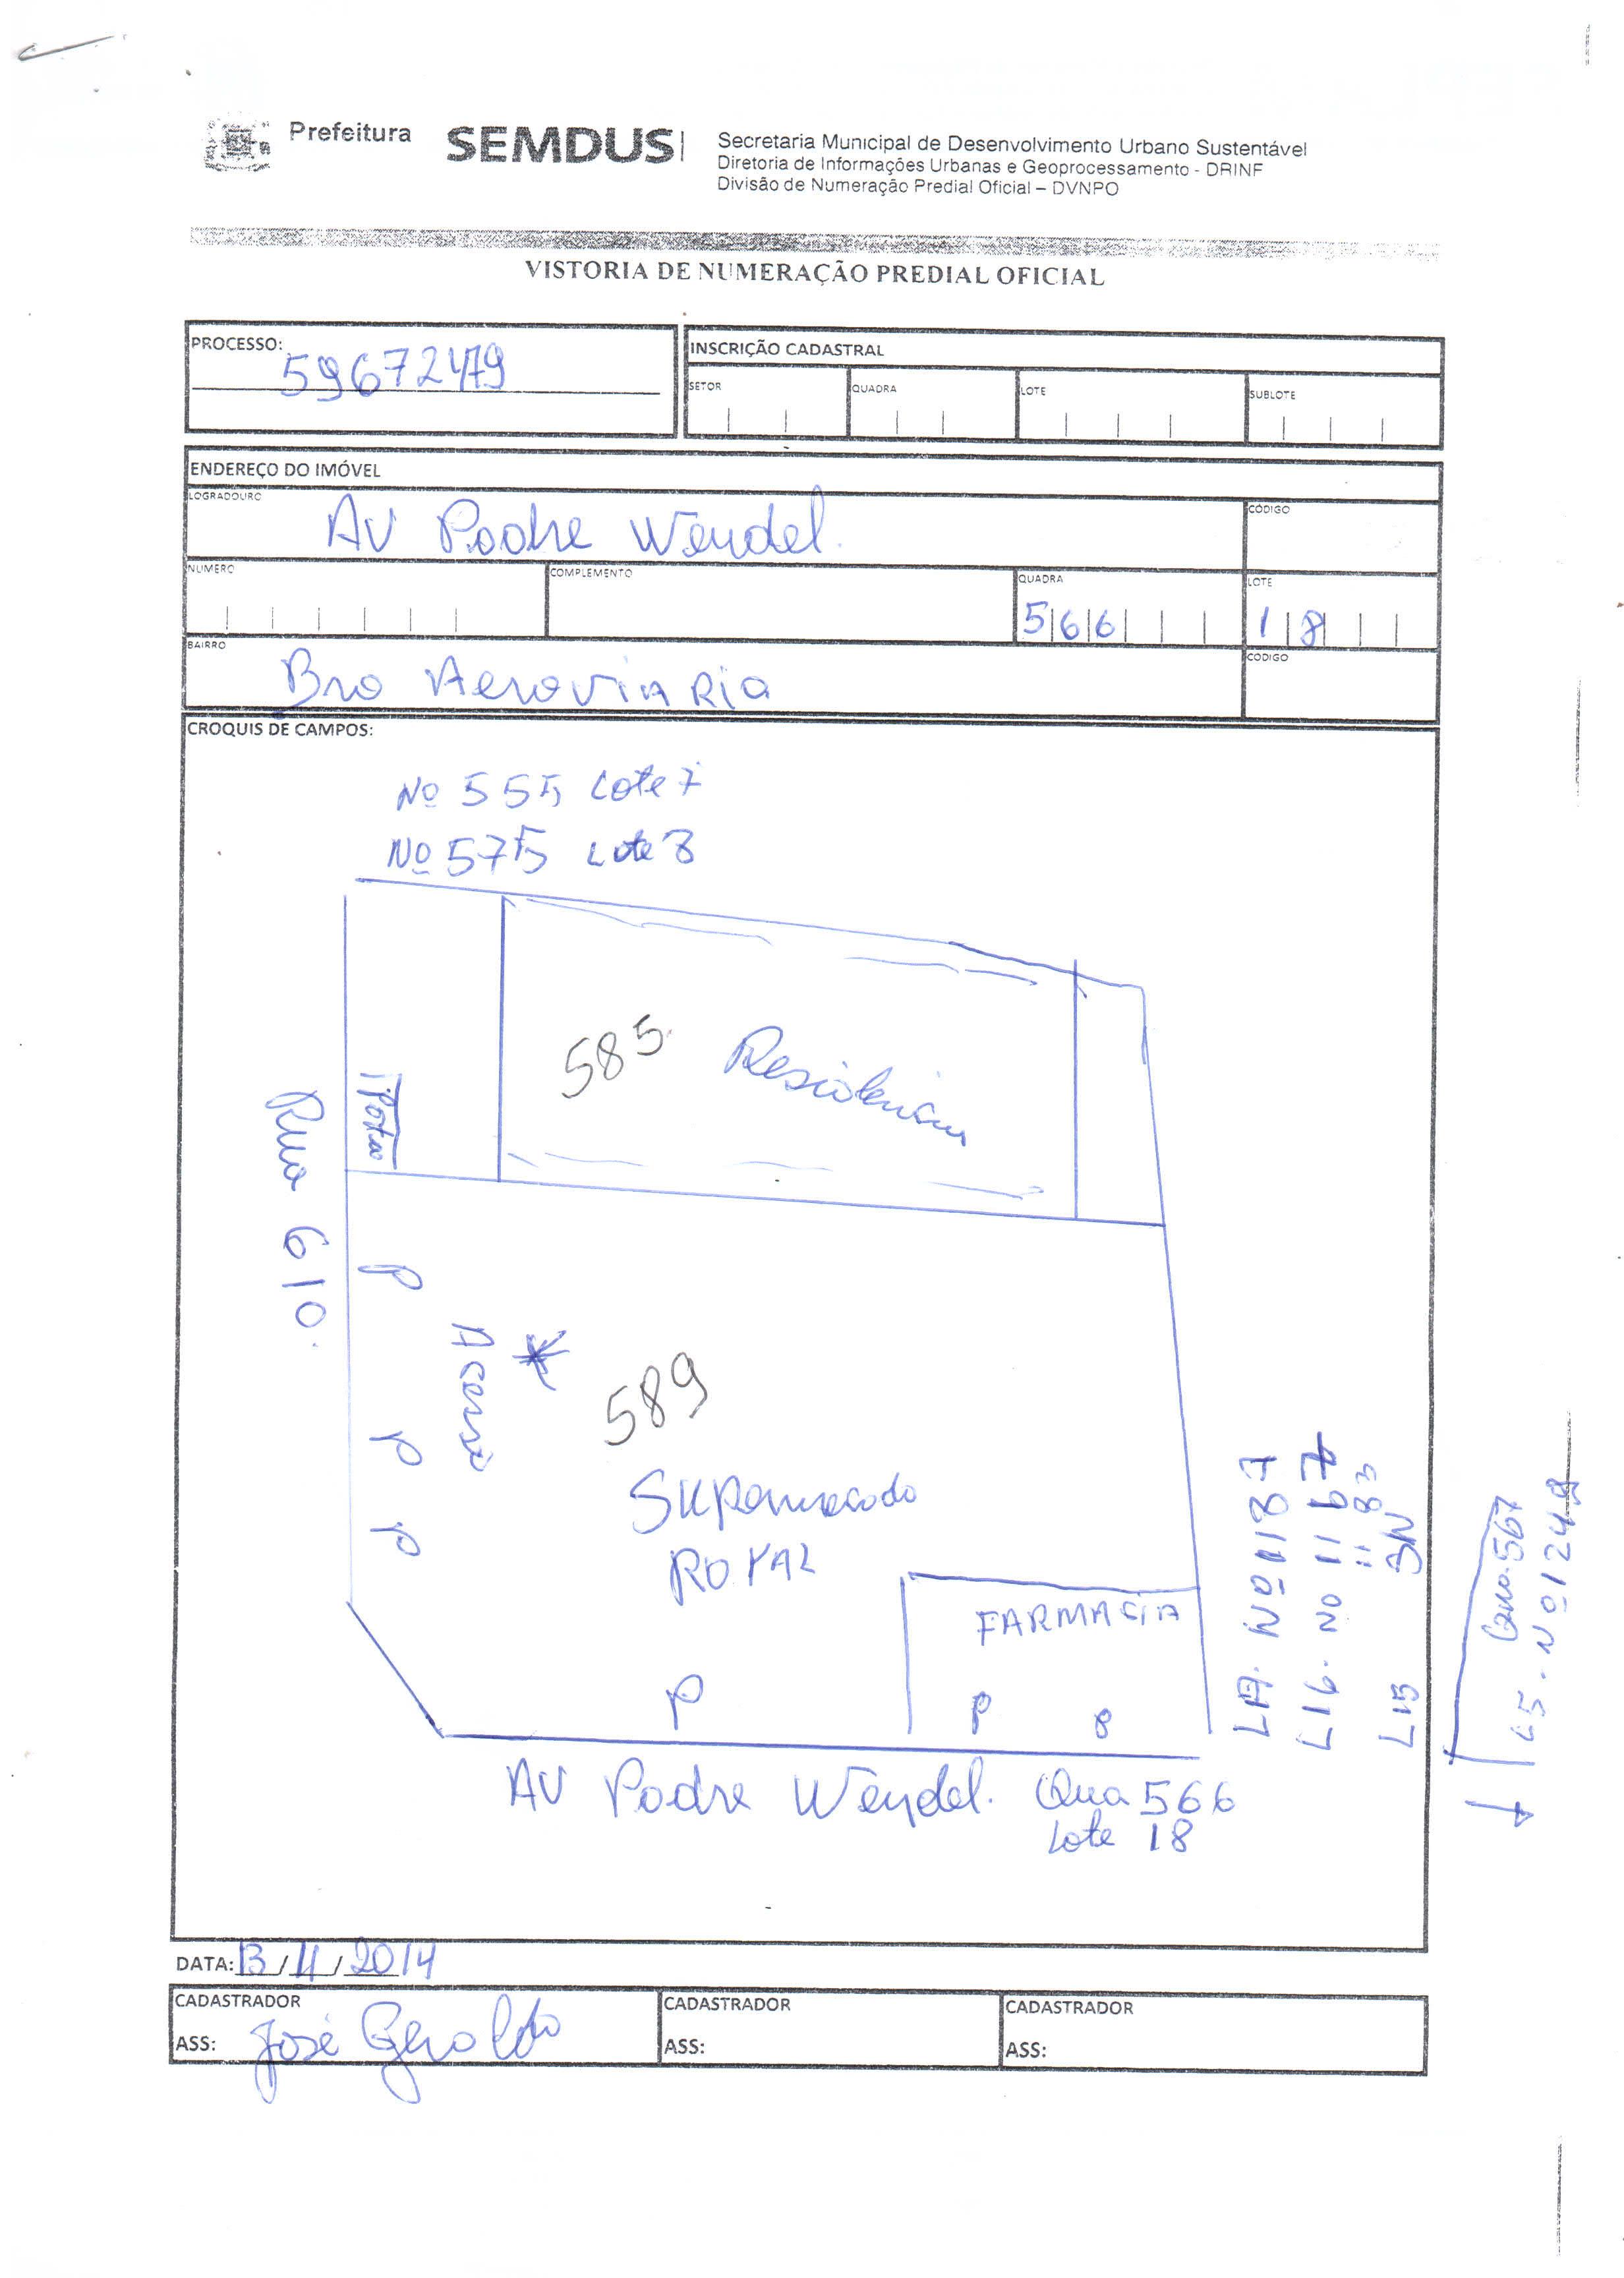 Prefeitura SEMDUS
Secretaria Municipal de Desenvolvimento Urbano Sustentável
Diretoria de Informações Urbanas e Geoprocessamento - DRINF
Divisão de Numeração Predial Oficial – DVNPO
VISTORIA DE NUMERAÇÃO PREDIAL OFICIAL
PROCESSO: 59672479
INSCRIÇÃO CADASTRAL
SETOR QUADRA LOTE SUBLOTE
ENDEREÇO DO IMÓVEL
LOGRADOURO AV Padre Wendel. CÓDIGO
NUMERO COMPLEMENTO QUADRA 566 LOTE 18
BAIRRO Bro Aeroviaria CÓDIGO
CROQUIS DE CAMPOS:
Nº 555 Lote 7
Nº 575 Lote 8
585. Residencia
Portão
Rua 610.
P
Acesso
589
P
P
Supermercado
ROYAL
FARMACIA
P P
L17. Nº 1187
L16. Nº 1167
" 83
L15 SN
Qua. 567
L5. Nº 1249
AV Padre Wendel. Qua 566
Lote 18
DATA: 13/11/2014
CADASTRADOR CADASTRADOR CADASTRADOR
ASS: José Geraldo ASS: ASS: